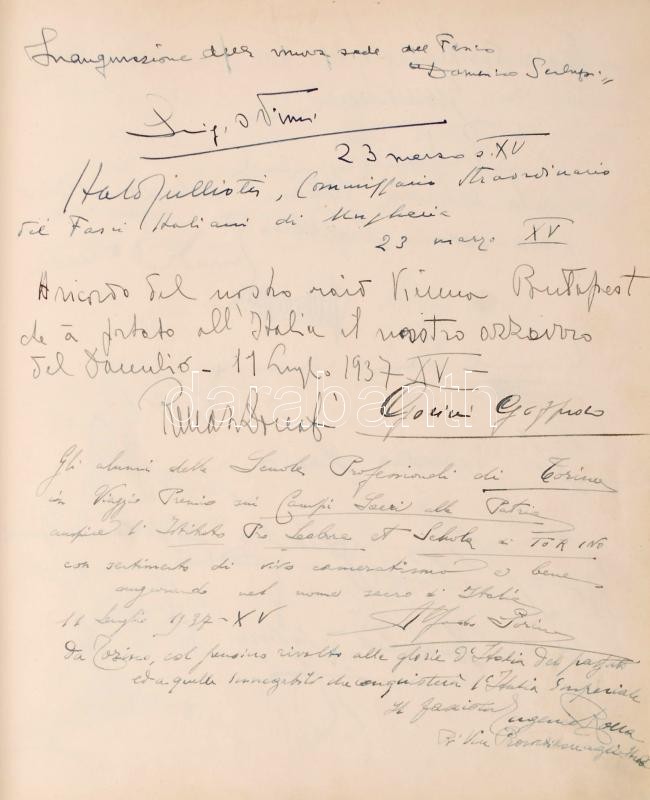 Inaugurazione della nuova sede del Fascio
"Domenico
23 marzo a. XV
Commissario straordinario
dei Fasci Italiani di Ungheria
23 marzo XV
A ricordo del nostro raid Vienna Budapest
che à portato all'Italia il nostro
del Danubio - 11 Luglio 1937 - XV -
darabanth
Gli alunni della Scuola Professionali di Torino
in Viaggio Premio sui Campi Sacri alla Patria
auspice l'Istituto Pro Labore et Schola di TORINO
con sentimento di vivo cameratismo e bene
augurando nel nome sacro d'Italia
11 Luglio 1937 - XV
Da Torino, col pensiero rivolto alle glorie d'Italia del passato
ed a quelle che conquisterà l'Italia Imperiale
Il fascista Eugenio
Di Via